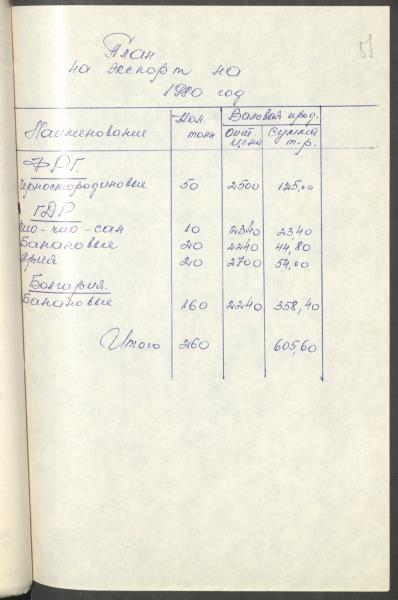 51
План
на экспорт на
1980 год
Наименование Кол. тонн Валовая прод.
Опт. цена Сумма т-р.
ФРГ.
Черносмородиновые 50 2500 125,00
ГДР
Чио-чио-сан 10 2340 2340
Банановые 20 2240 44,80
Ария 20 2700 54,00
Болгария.
Банановые 160 2240 358,40
Итого 260 605,60